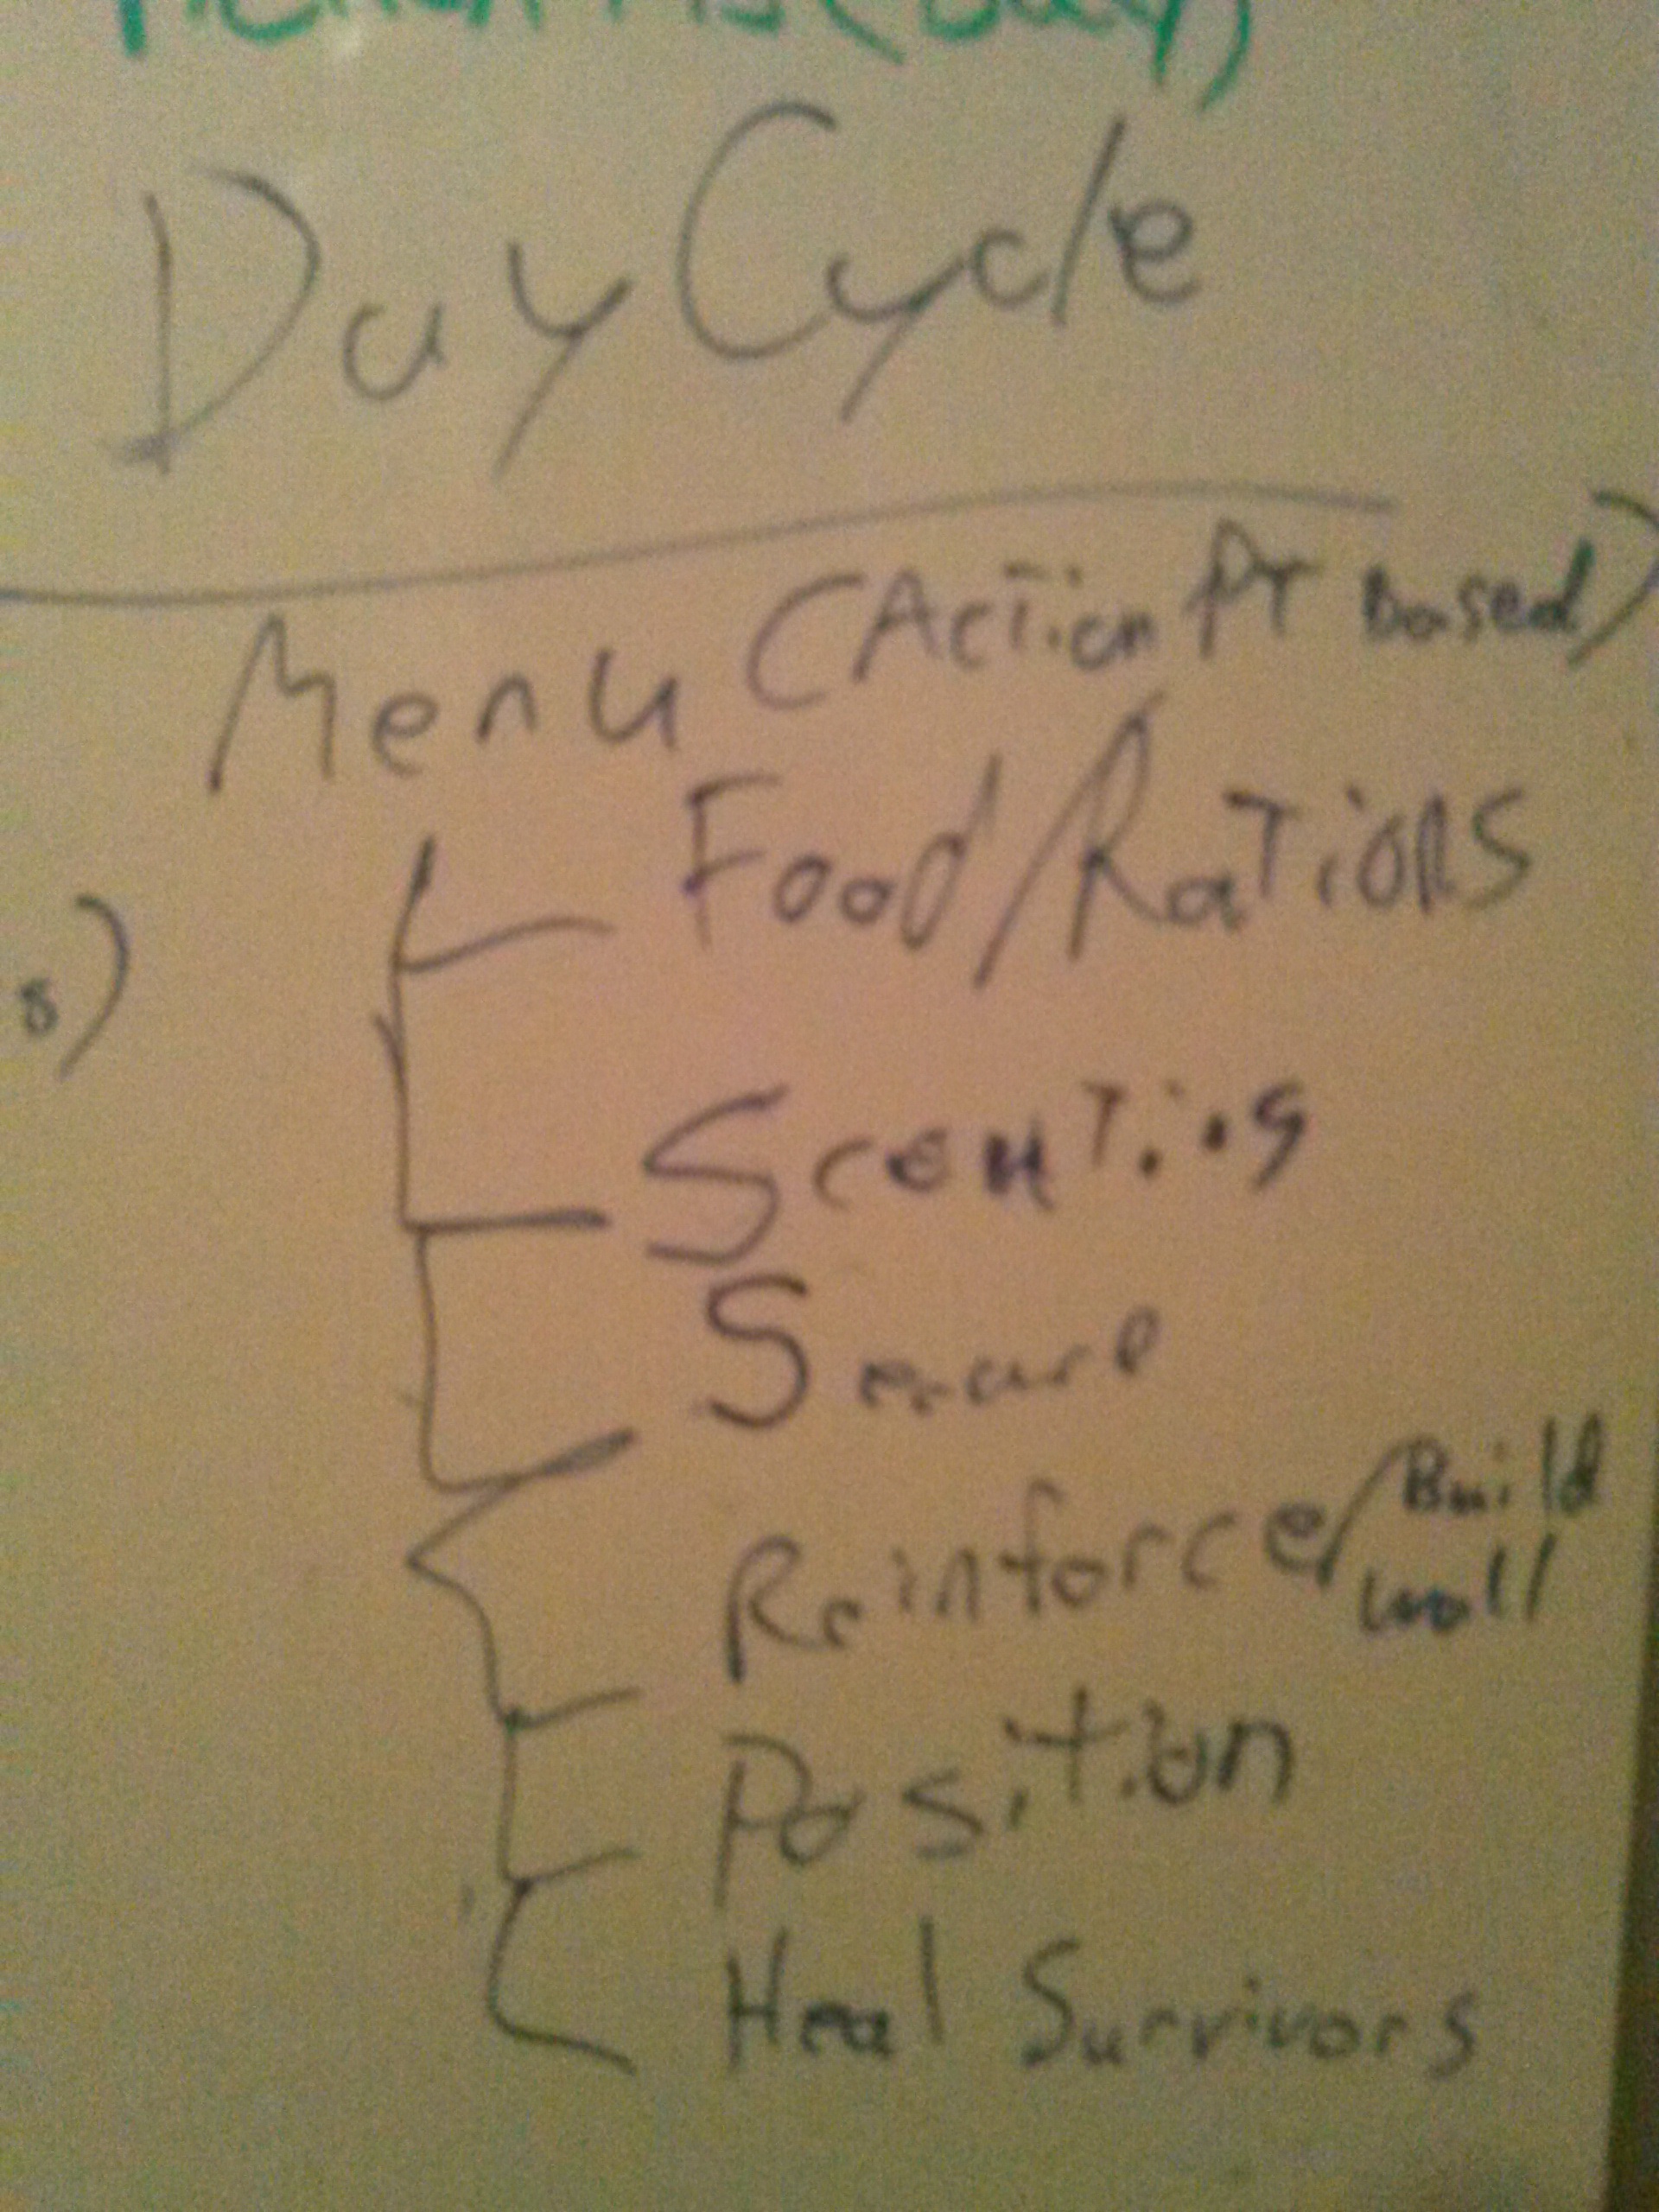 (Day)
Day Cycle
Menu (Action Pt Based)
Food/Rations
s)
Scouting
Secure
Reinforce/Build
wall
Position
Heal Survivors